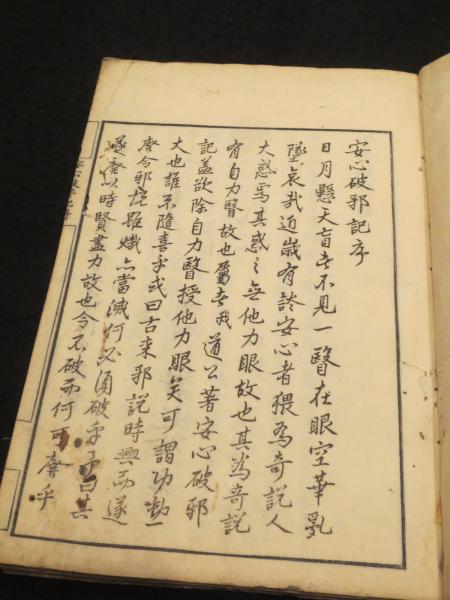 安心破邪記序
日月懸天盲者不見一瞖在眼空華亂
墜哀哉近歳有談安心者猥為奇説人
大惑焉其惑之無他力眼故也其為奇説
有自力瞖故也属者我　道公著安心破邪
記蓋欲除自力瞖授他力眼矣可謂功勤
大也誰不隨喜乎或曰古来邪説時興而遂
廃今邪説雖熾亦當滅何必須破乎予曰其
遂廃以時賢盡力故也今不破而何可廃乎